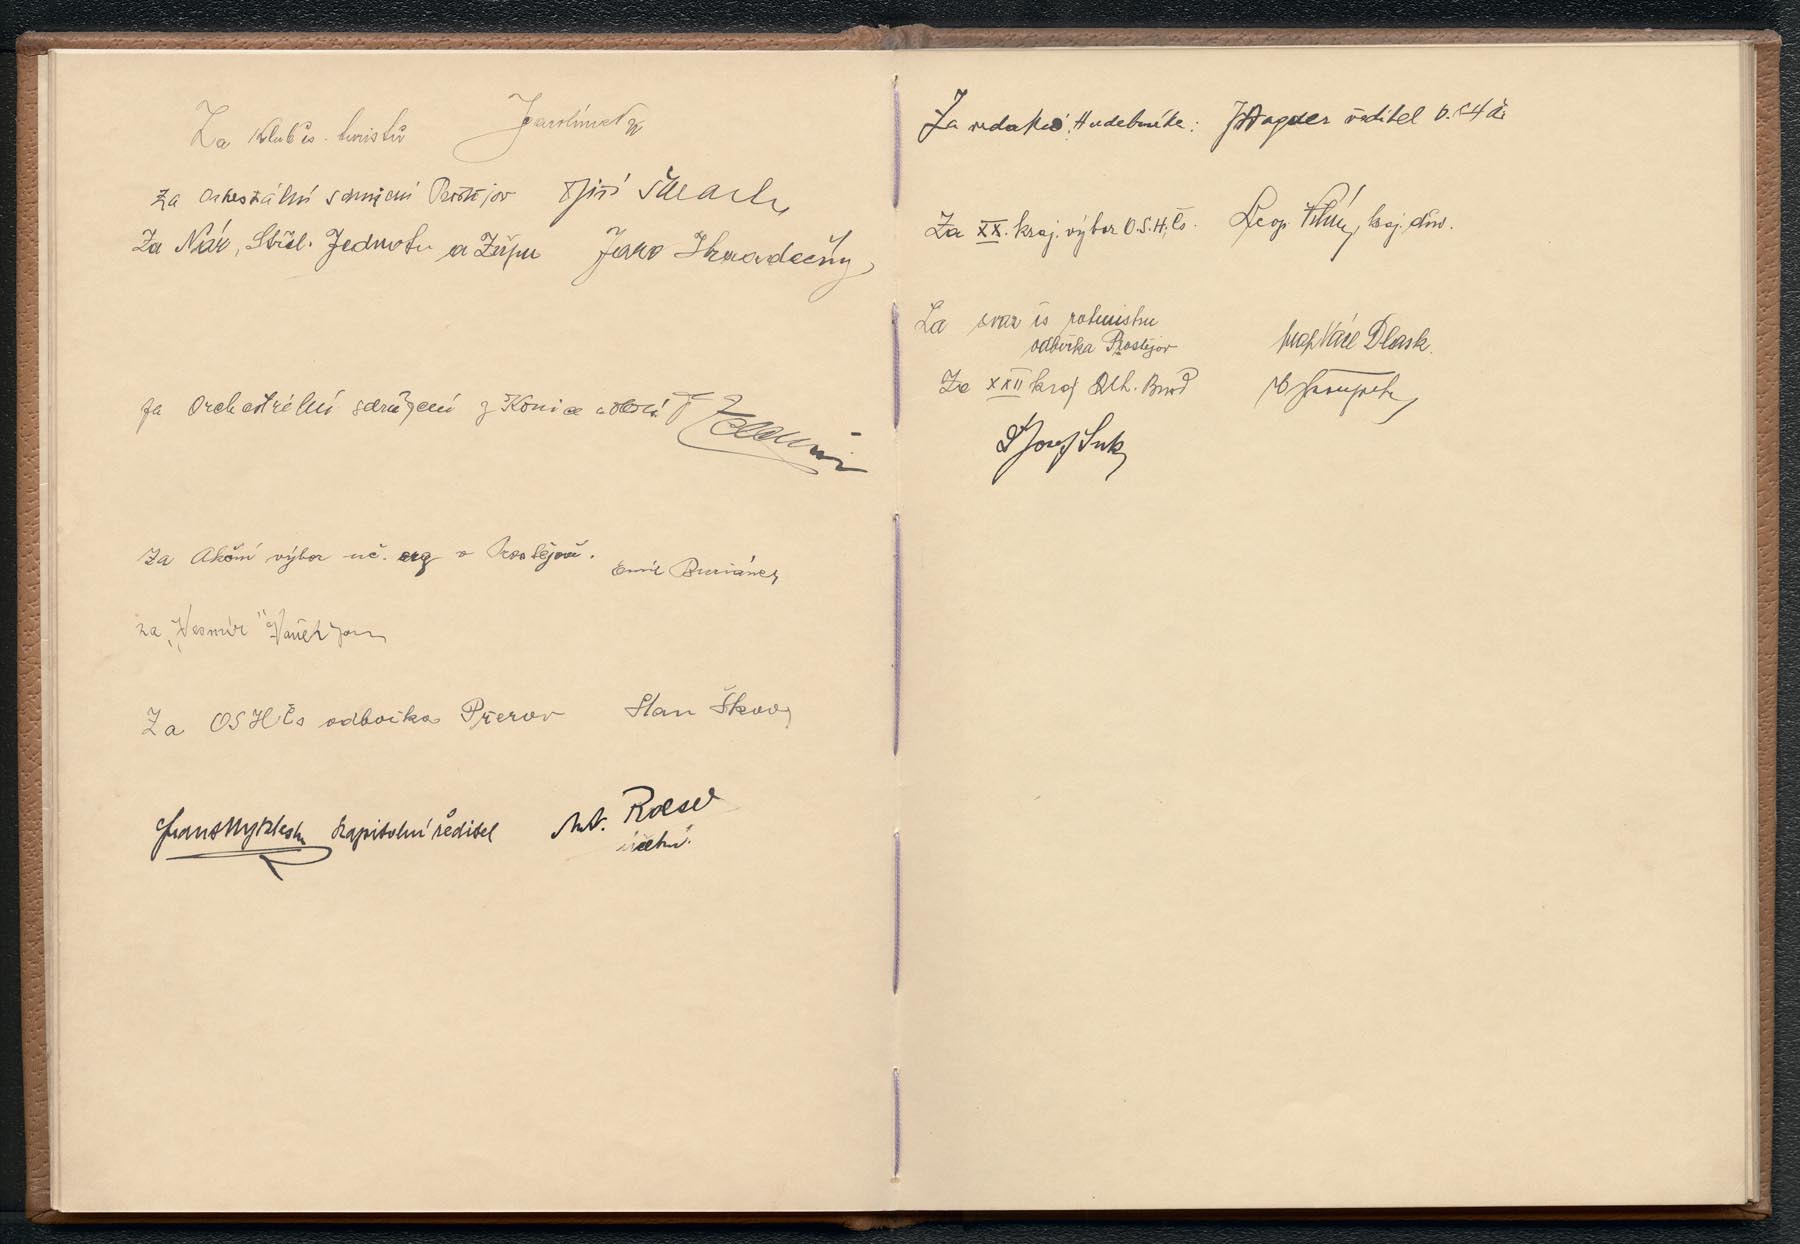 Za Klub čs. turistů
Za orkestrální sdružení Prostějov Jiří
Za Nár. Střel. Jednotu a Župu
za Orchestrální sdružení z Konice a okolí
Za Akční výbor uč. org v Prostějově.
Emil Buriánek
za „Vesmír" Vaněk Jan
Za OSHČs odbočka Přerov Stan
kapitolní ředitel Ant. Roesel
účetní.
Za redakci Hudebníka: J Wagner ředitel O.S.H.Č.
Za XX. kraj. výbor O.S.H.Čs. Leop. kraj. dův.
Za svaz čs rotmistrů
odbočka Prostějov Václ Dlask.
Za XXII kraj Uh. Brod
Josef Suk